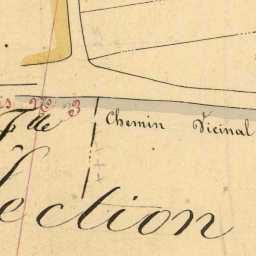 is 2e 3
Flle
Chemin Vicinal
ection